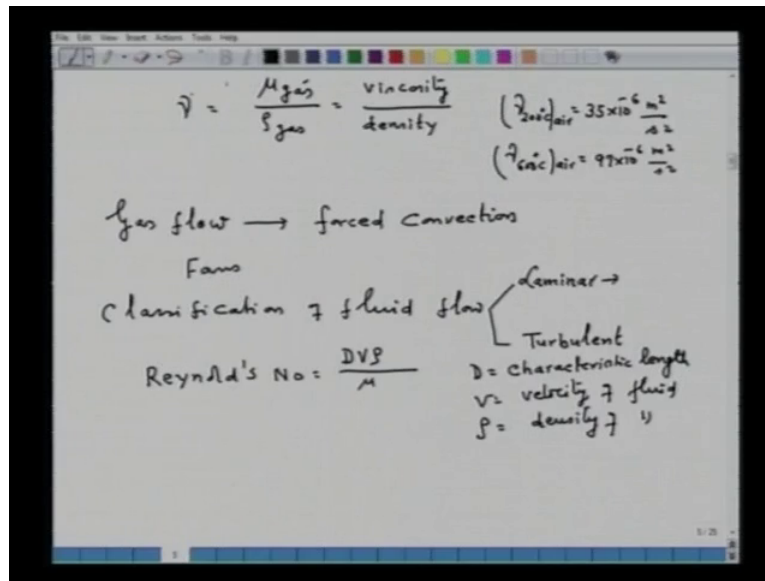 File Edit View Insert Actions Tools Help
ν = μgas / ρgas = viscosity / density
(ν200°C)air = 35×10⁻⁶ m²/s²
(ν600°C)air = 97×10⁻⁶ m²/s²
Gas flow → forced convection
Fans
Classification of fluid flow
Laminar →
Turbulent
Reynold's No = DVρ / μ
D = characteristic length
V = velocity of fluid
ρ = density of "
5/25
5